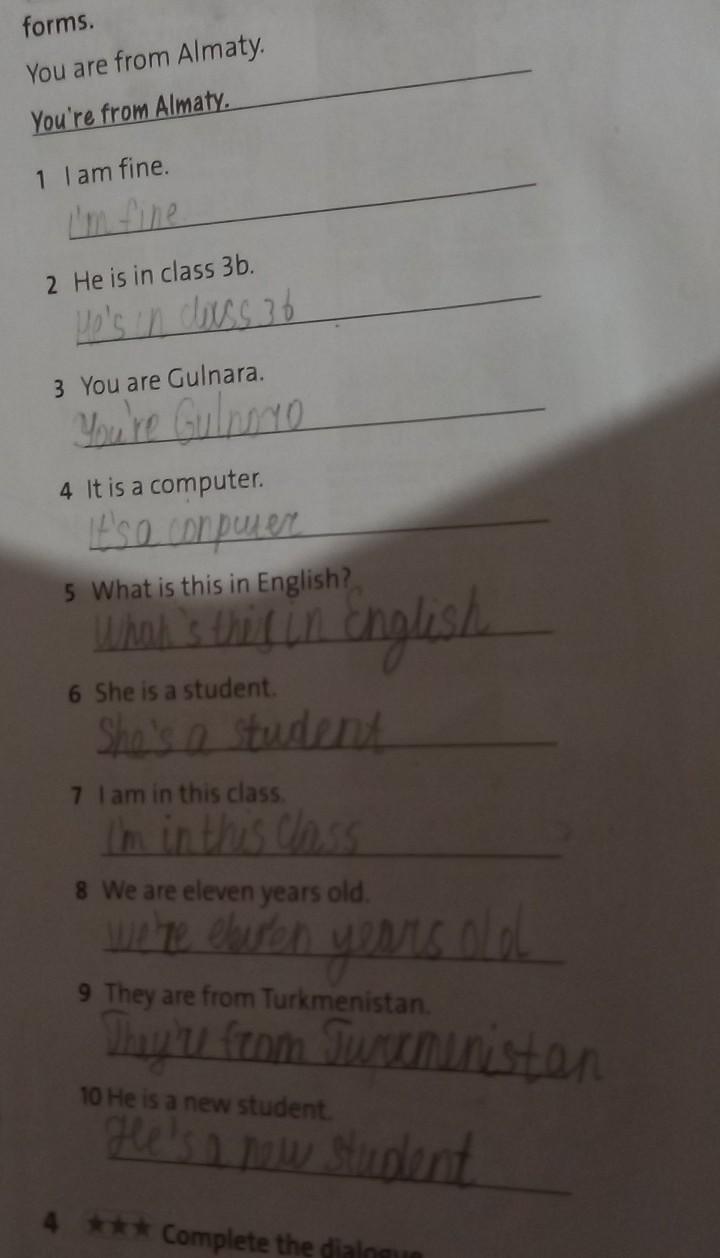 forms.
You are from Almaty.
You're from Almaty.
1 I am fine.
I'm fine
2 He is in class 3b.
He's in class 3b
3 You are Gulnara.
You're Gulnara
4 It is a computer.
It's a conputer
5 What is this in English?
What's this in English
6 She is a student.
She's a student
7 I am in this class.
I'm in this class
8 We are eleven years old.
We're eleven years old
9 They are from Turkmenistan.
They're from Turkmenistan
10 He is a new student.
He's a new student
4 ★★★ Complete the dialogue